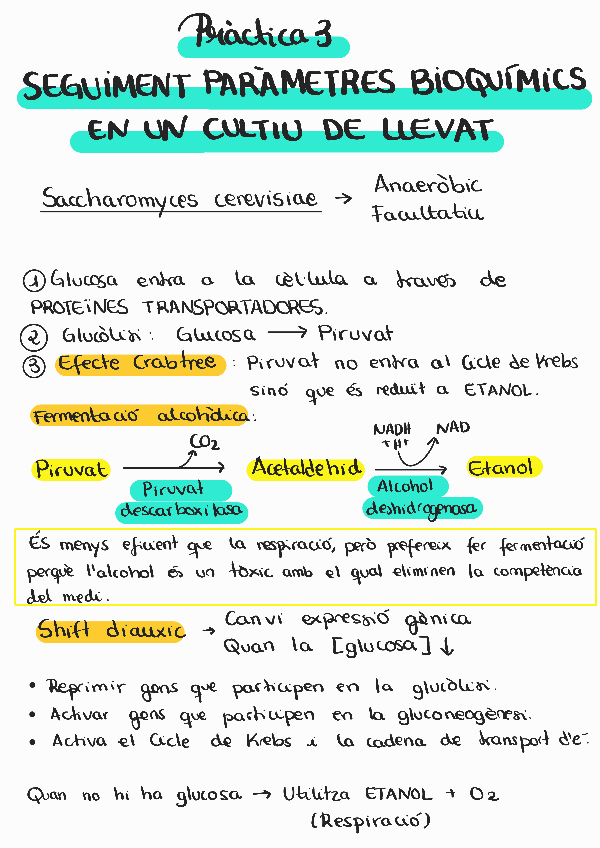 Pràctica 3
SEGUIMENT PARÀMETRES BIOQUÍMICS
EN UN CULTIU DE LLEVAT
Saccharomyces cerevisiae → Anaeròbic
Facultatiu
① Glucosa entra a la cèl·lula a través de
PROTEÏNES TRANSPORTADORES.
② Glucòlisi: Glucosa → Piruvat
③ Efecte Crabtree: Piruvat no entra al Cicle de Krebs
sinó que és reduït a ETANOL.
Fermentació alcohòlica:
CO2 NADH + H+ NAD
Piruvat → Acetaldehid → Etanol
Piruvat descarboxilasa
Alcohol deshidrogenasa
És menys eficient que la respiració, però prefereix fer fermentació
perquè l'alcohol és un tòxic amb el qual eliminen la competència
del medi.
Shift diauxic → Canvi expressió gènica
Quan la [glucosa] ↓
• Reprimir gens que participen en la glucòlisi.
• Activar gens que participen en la gluconeogènesi.
• Activa el Cicle de Krebs i la cadena de transport d'e-.
Quan no hi ha glucosa → Utilitza ETANOL + O2
(Respiració)